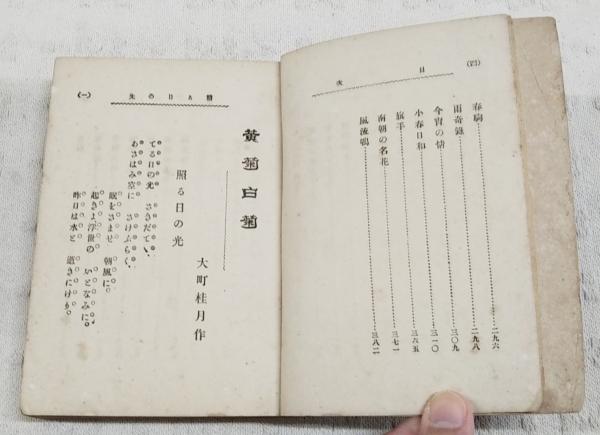 目次
(四)
春駒……二九六
雨奇錄……二九八
今宵の情……三〇九
小春日和……三一〇
旗手……三六五
南朝の名花……三七一
風流鴨……三八二
照る日の光
(一)
黃菊白菊
大町桂月作
照る日の光
てる日の光 さきだてい、
あさはみ空に さけぶらく、
眠をさませ 朝風に。
起きよ浮世の いとなみに。
昨日は水と 逝きにけり。